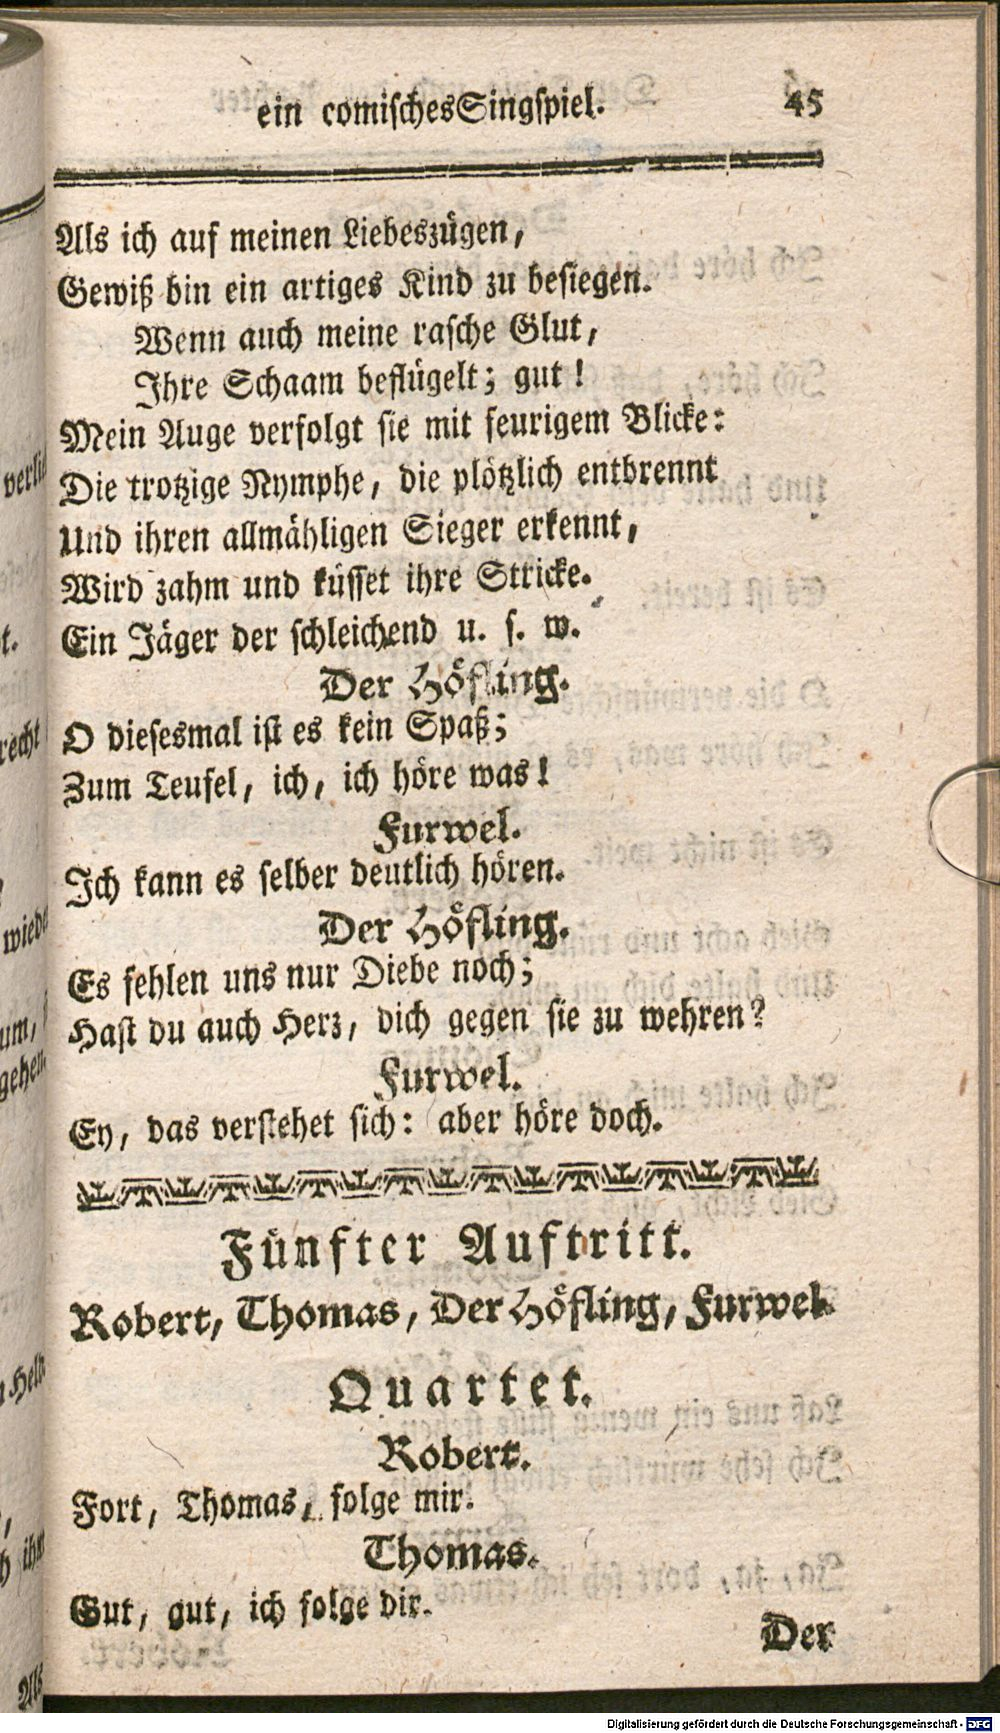 ein comisches Singspiel. 45
Als ich auf meinen Liebeszügen,
Gewiß bin ein artiges Kind zu besiegen.
Wenn auch meine rasche Glut,
Ihre Schaam beflügelt; gut!
Mein Auge verfolgt sie mit feurigem Blicke:
Die trotzige Nymphe, die plötzlich entbrennt
Und ihren allmähligen Sieger erkennt,
Wird zahm und küsset ihre Stricke.
Ein Jäger der schleichend u. s. w.
Der Höfling.
O diesesmal ist es kein Spaß;
Zum Teufel, ich, ich höre was!
Furwel.
Ich kann es selber deutlich hören.
Der Höfling.
Es fehlen uns nur Diebe noch;
Hast du auch Herz, dich gegen sie zu wehren?
Furwel.
Ey, das verstehet sich: aber höre doch.
Fünfter Auftritt.
Robert, Thomas, Der Höfling, Furwel.
Quartet.
Robert.
Fort, Thomas, folge mir.
Thomas.
Gut, gut, ich folge dir.
Der
Digitalisierung gefördert durch die Deutsche Forschungsgemeinschaft - DFG